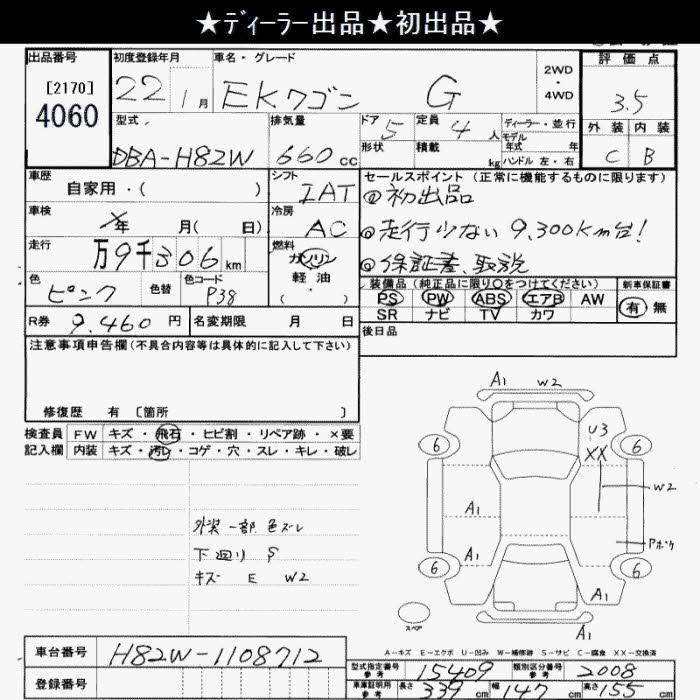 ★ディーラー出品★初出品★
出品番号 初度登録年月 車名・グレード 評価点
[2170] 22 1月 EKワゴン G 2WD・4WD 3.5
4060
型式 排気量 ドア 5 定員 4人 ディーラー・並行 外装 内装
DBA-H82W 660cc 形状 積載 kg モデル年式 年 C B
ハンドル 左・右
車歴 シフト セールスポイント(正常に機能するものに限ります)
自家用・( ) IAT ◎初出品
車検 年 月( 日) 冷房 AC ◎走行少ない 9,300km台!
走行 万9千306km 燃料 ガソリン ◎保証書、取説
軽油
・( )
色 ピンク 色替 色コード P38 装備品(純正品に限り○をつけてください) 新車保証書
PS PW ABS エアB AW 有 無
SR ナビ TV カワ
R券 9,460円 名変期限 月 日 後日品
注意事項申告欄(不具合内容等は具体的に記入して下さい)
修復歴 有 〔箇所 〕
検査員 FW キズ・飛石・ヒビ割・リペア跡・×要
記入欄 内装 キズ・汚レ・コゲ・穴・スレ・キレ・破レ
外装一部色ズレ
下廻り S
キズ E W2
A1 W2
U3
XX
6 6
W2
A1
Pボケ
A1
6 6
A1
スペア
A1
A-キズ E-エクボ U-凹み W-補修跡 S-サビ C-腐食 XX-交換済
車台番号 H82W-1108712
登録番号
型式指定番号 参考 15409 類別区分番号 参考 2008
車庫証明用 参考 長さ 339cm 幅 147cm 高さ 155cm